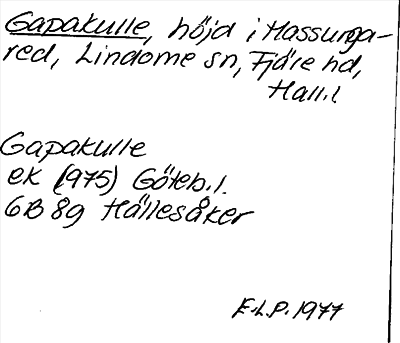 Gapakulle, höjd i Hassunga-
red, Lindome sn, Fjäre hd,
Hall.l
Gapakulle
ek (975) Göteb.l.
6B 8g Hällesåker
E.L.P. 1977